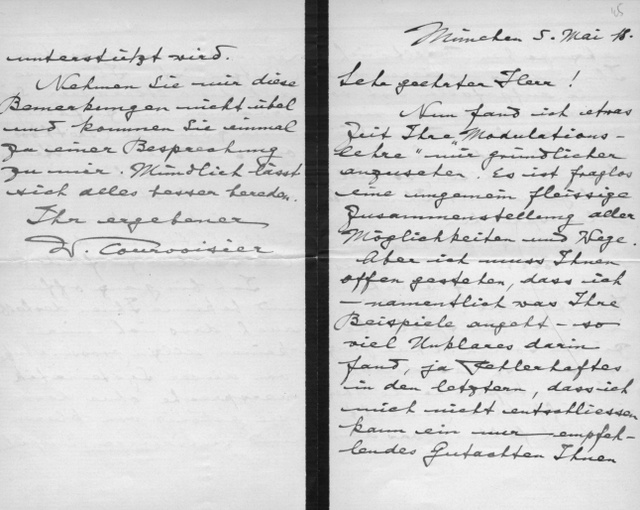 München 5. Mai 18.
Sehr geehrter Herr!
Nun fand ich etwas
Zeit Ihre „Modulations-
lehre" mir gründlicher
anzusehen. Es ist fraglos
eine ungemein fleissige
Zusammenstellung aller
Möglichkeiten und Wege.
Aber ich muss Ihnen
offen gestehen, dass ich
– namentlich was Ihre
Beispiele angeht – so
viel Unklares darin
fand, ja Fehlerhaftes
in den letztern, dass ich
mich nicht entschliessen
kann ein nur empfeh-
lendes Gutachten Ihnen
unterstützt wird.
Nehmen Sie mir diese
Bemerkungen nicht übel
und kommen Sie einmal
zu einer Besprechung
zu mir. Mündlich lässt
sich alles besser bereden.
Ihr ergebener
W. Courvoisier